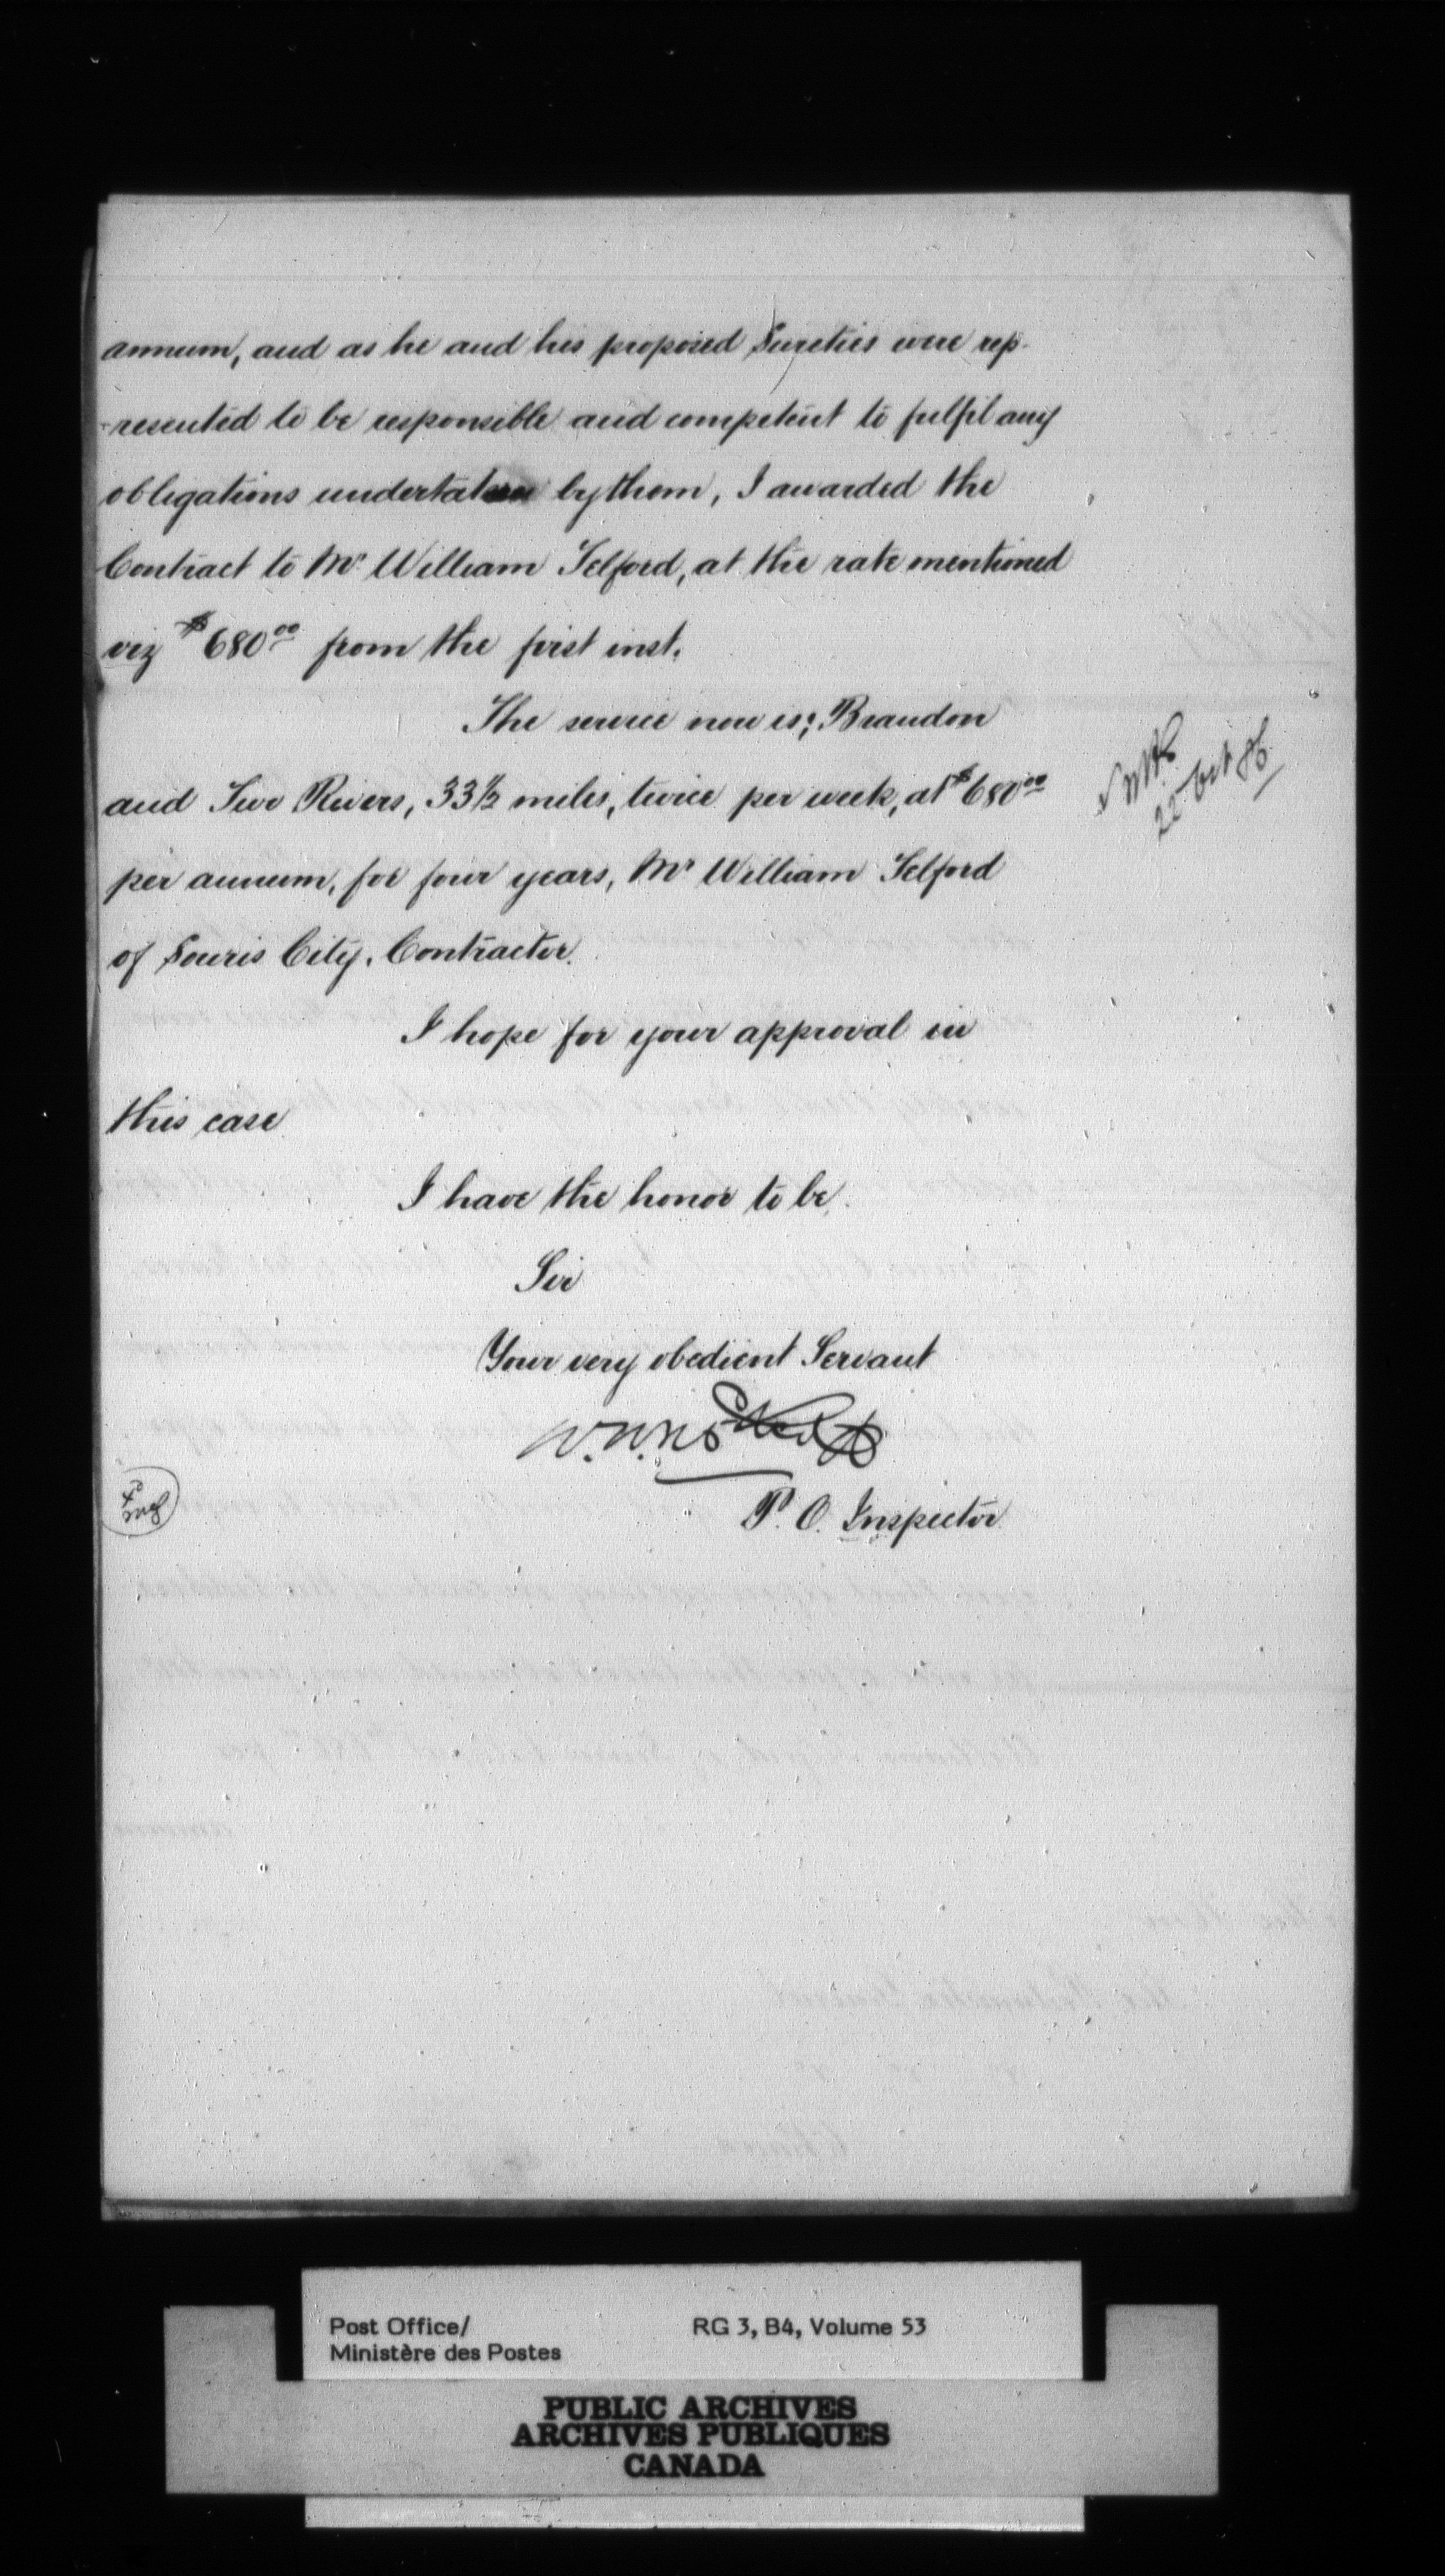 annum, and as he and his proposed Sureties were rep-
-resented to be responsible and competent to fulfil any
obligations undertaken by them, I awarded the
Contract to Mr William Telford, at the rate mentioned
viz $680.00 from the first inst.
The service now is; Brandon
and Two Rivers, 33½ miles, twice per week, at $680.00
per annum, for four years, Mr William Telford
of Souris City, Contractor.
22 Oct 86
I hope for your approval in
this case
I have the honor to be.
Sir
Your very obedient Servant
P. O. Inspector
Post Office/
Ministère des Postes
RG 3, B4, Volume 53
PUBLIC ARCHIVES
ARCHIVES PUBLIQUES
CANADA